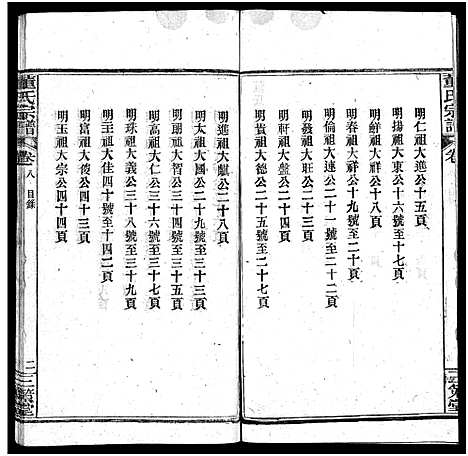 董氏宗譜
卷
明仁祖大進公十五頁
明揚祖大東公十六號至十七頁
明鮮祖大祥公十八頁
明春祖大祥公十九號至二十頁
明倫祖大達公二十一號至二十二頁
明發祖大旺公二十三頁
明軒祖大盤公二十四頁
明貴祖大德公二十五號至二十七頁
明進祖大麒公二十八頁
明大祖大國公二十九號至三十三頁
明朗祖大智公三十四號至三十五頁
明高祖大仁公三十六號至三十七頁
明珠祖大義公三十八號至三十九頁
明王祖大佳四十號至十四二頁
明富祖大俊公四十三頁
明玉祖大宗公四十四頁
董氏宗譜
卷八
目錄
二
三策堂